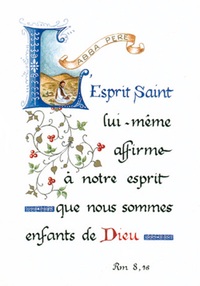 ABBA PERE
L'Esprit Saint
lui-même
affirme
à notre esprit
que nous sommes
enfants de Dieu
Rm 8,16